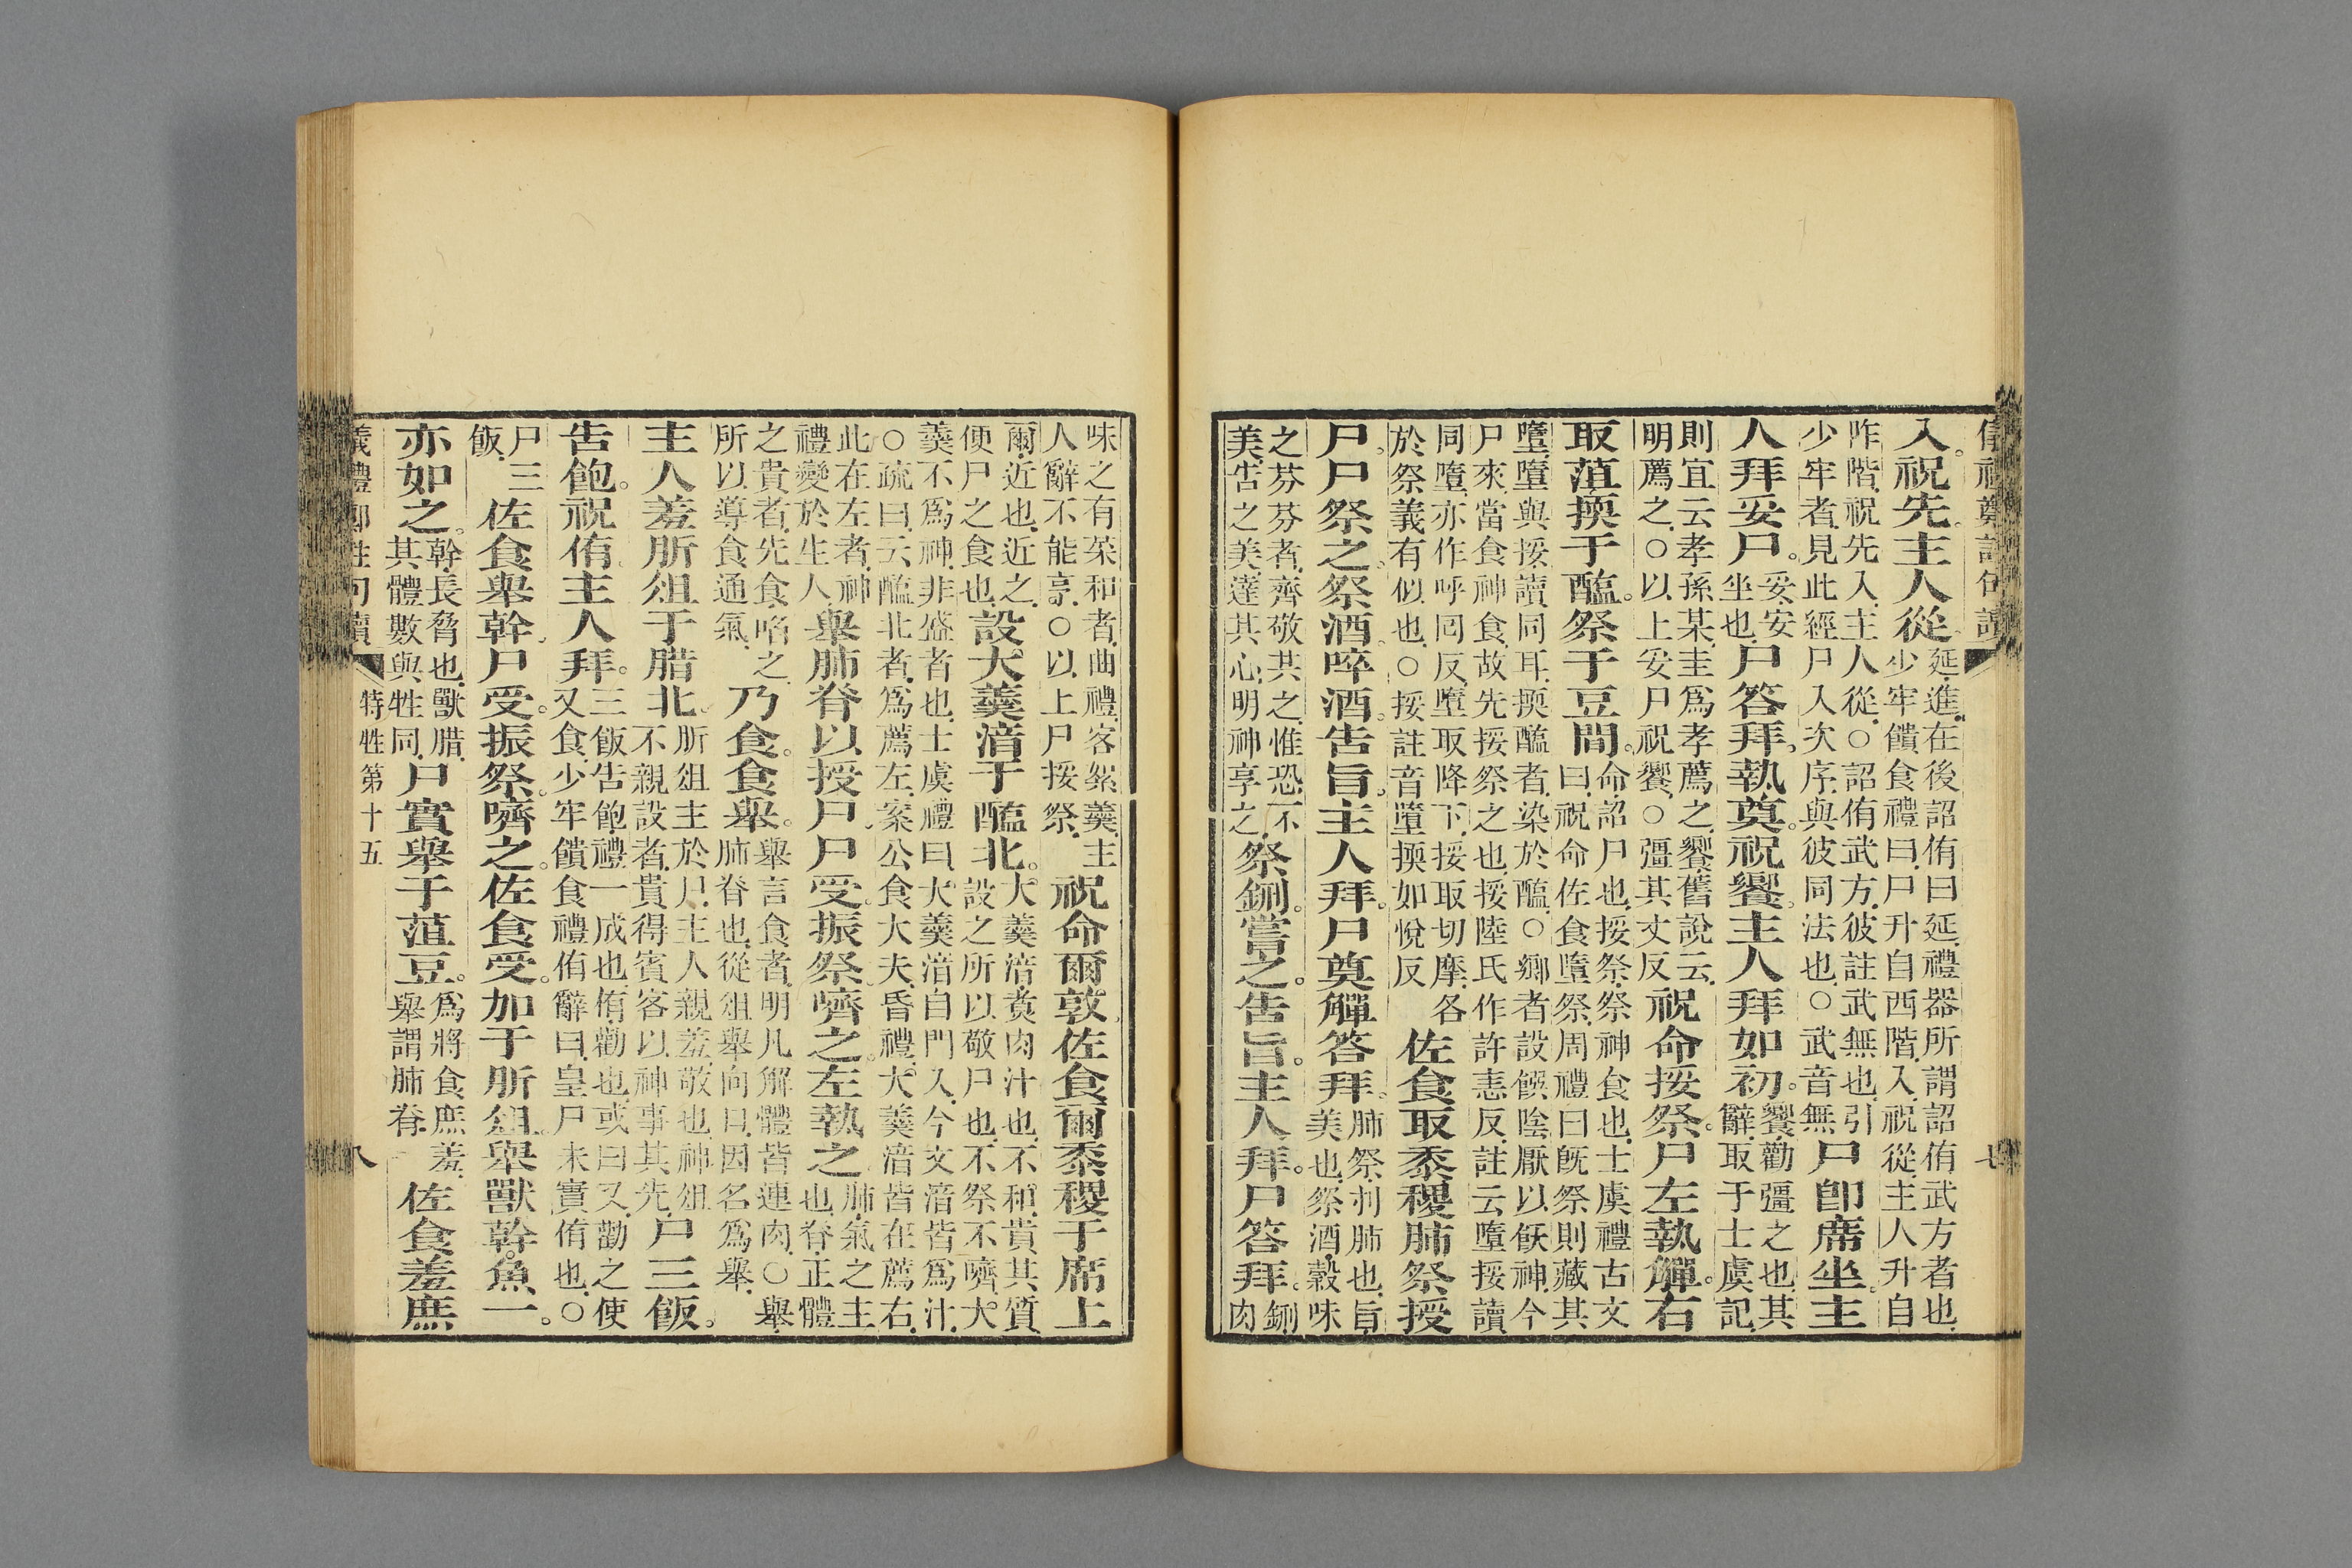 儀禮鄭註句讀 七
入。祝先。主人從延進在後詔侑曰延禮器所謂詔侑武方者也少牢饋食禮曰尸升自西階入祝從主人升自
阼階祝先入主人從○詔侑武方彼註武無也引少牢者見此經尸入次序與彼同法也○武音無尸卽席坐。主
人拜妥尸。妥安坐也尸答拜。執奠。祝饗。主人拜如初。饗勸彊之也其辭取于士虞記
則宜云孝孫某圭爲孝薦之饗舊說云明薦之○以上妥尸祝饗○彊其丈反祝命挼祭。尸左執觶。右
取菹擩于醢。祭于豆間。命詔尸也挼祭祭神食也士虞禮古文曰祝命佐食墮祭周禮曰旣祭則藏其
墮墮與挼讀同耳擩醢者染於醢○鄉者設饌陰厭以飫神今尸來當食神食故先挼祭之也挼陸氏作許恚反註云墮挼讀
同墮亦作呼回反墮取降下挼取切摩各於祭義有似也○挼註音墮擩如悅反佐食取黍稷肺祭授
尸。尸祭之。祭酒。啐酒。告旨。主人拜。尸奠觶答拜。肺祭刌肺也旨美也祭酒穀味
之芬芬者齊敬共之惟恐不美告之美達其心明神享之祭鉶。嘗之。告旨。主人拜。尸答拜。鉶肉
味之有菜和者曲禮客絮羹主人辭不能亨○以上尸挼祭祝命爾敦。佐食爾黍稷于席上
爾近也近之便尸之食也設大羹湆于醢北。大羹湆煮肉汁也不和貴其質設之所以敬尸也不祭不嚌大
羹不爲神非盛者也士虞禮曰大羹湆自門入今文湆皆爲汁○疏曰云醢北者爲薦左案公食大夫昏禮大羹湆皆在薦右
此在左者神禮變於生人舉肺脊以授尸。尸受。振祭。嚌之。左執之肺氣之主也脊正體
之貴者先食啗之所以導食通氣乃食。食舉。舉言食者明凡解體皆連肉○舉肺脊也從俎舉向口因名爲舉
主人羞肵俎于腊北。肵俎主於尸主人親羞敬也神俎不親設者貴得賓客以神事其先尸三飯。
告飽。祝侑。主人拜。三飯告飽禮一成也侑勸也或曰又勸之使又食少牢饋食禮侑辭曰皇尸未實侑也○
尸三飯佐食舉幹。尸受。振祭。嚌之。佐食受。加于肵俎。舉獸幹。魚一。
亦如之。幹長脅也獸腊其體數與牲同尸實舉于菹豆。爲將食庶羞舉謂肺脊佐食羞庶
儀禮鄭註句讀 特牲第十五 八